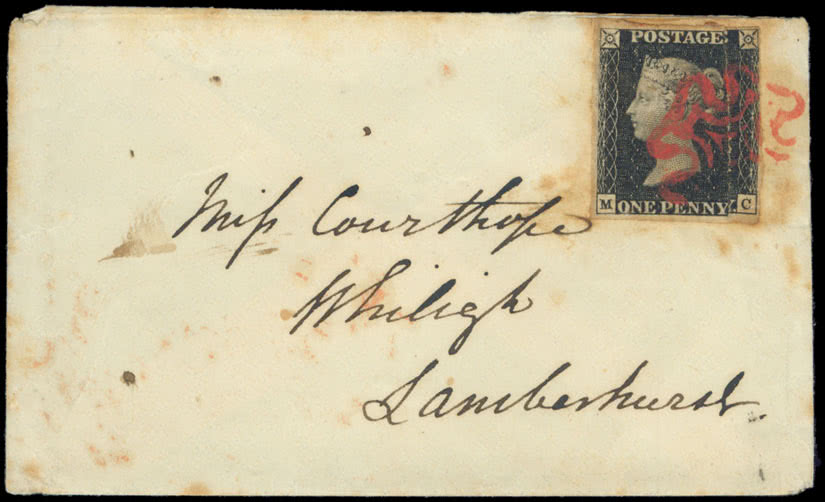 POSTAGE
M ONE PENNY C
Miſs Courthope
Whiligh
Lamberhurst.